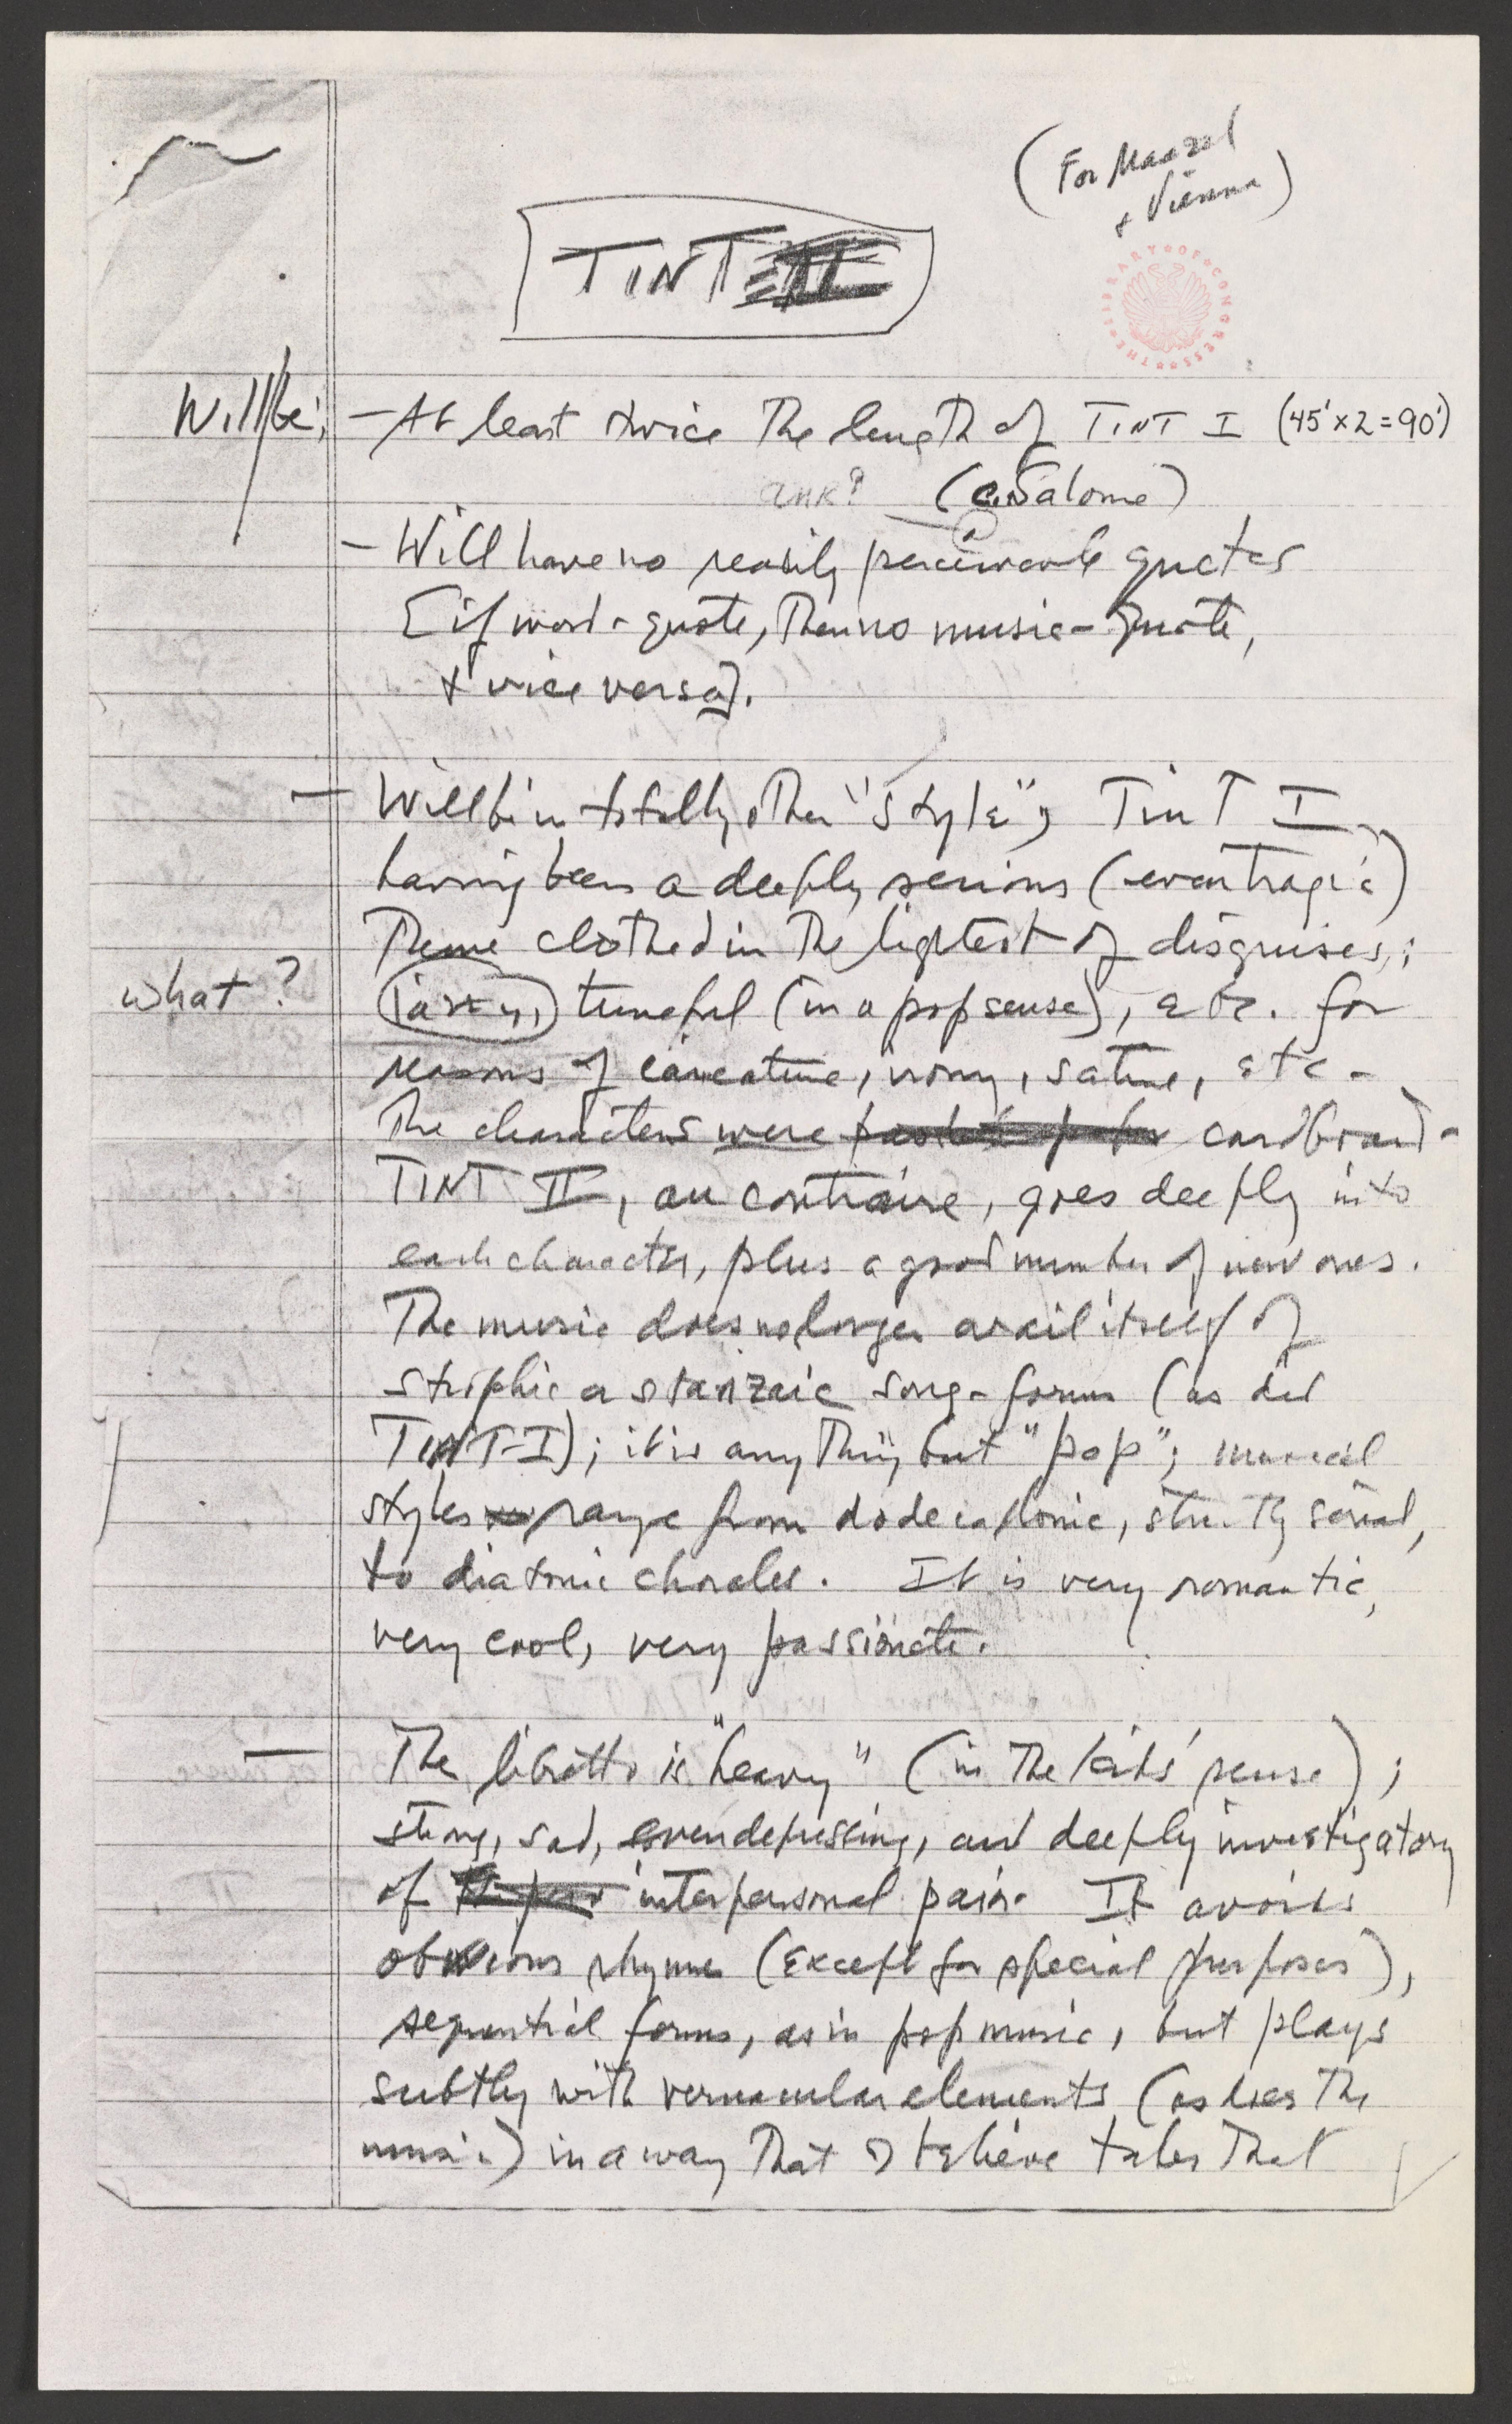 (For Maazel
& Vienna)
THE LIBRARY OF CONGRESS
TINT II
Will be: — At least twice the length of TINT I (45' x 2 = 90')
(c. Salome)
— Will have no readily perceivable quotes
[if word-quote, then no music-quote,
& vice versa].
— Will be in totally other "style"; TINT I
having been a deeply serious (even tragic)
theme clothed in the lightest of disguises;
what? jazzy, tuneful (in a pop sense), etc. for
reasons of caricature, irony, satire, etc -
The characters were cardboard -
TINT II, au contraire, goes deeply into
each character, plus a good number of new ones.
The music does no longer avail itself of
strophic or stanzaic song-forms (as did
TINT-I); it is anything but "pop"; musical
styles range from dodecaphonic, strictly serial,
to diatonic chorales. It is very romantic,
very cool, very passionate.
— The libretto is "heavy" (in the kids' sense);
strong, sad, even depressing, and deeply investigatory
of interpersonal pain. It avoids
obvious rhyme (except for special purposes),
sequential forms, as in pop music, but plays
subtly with vernacular elements (as does the
music) in a way that I believe takes that